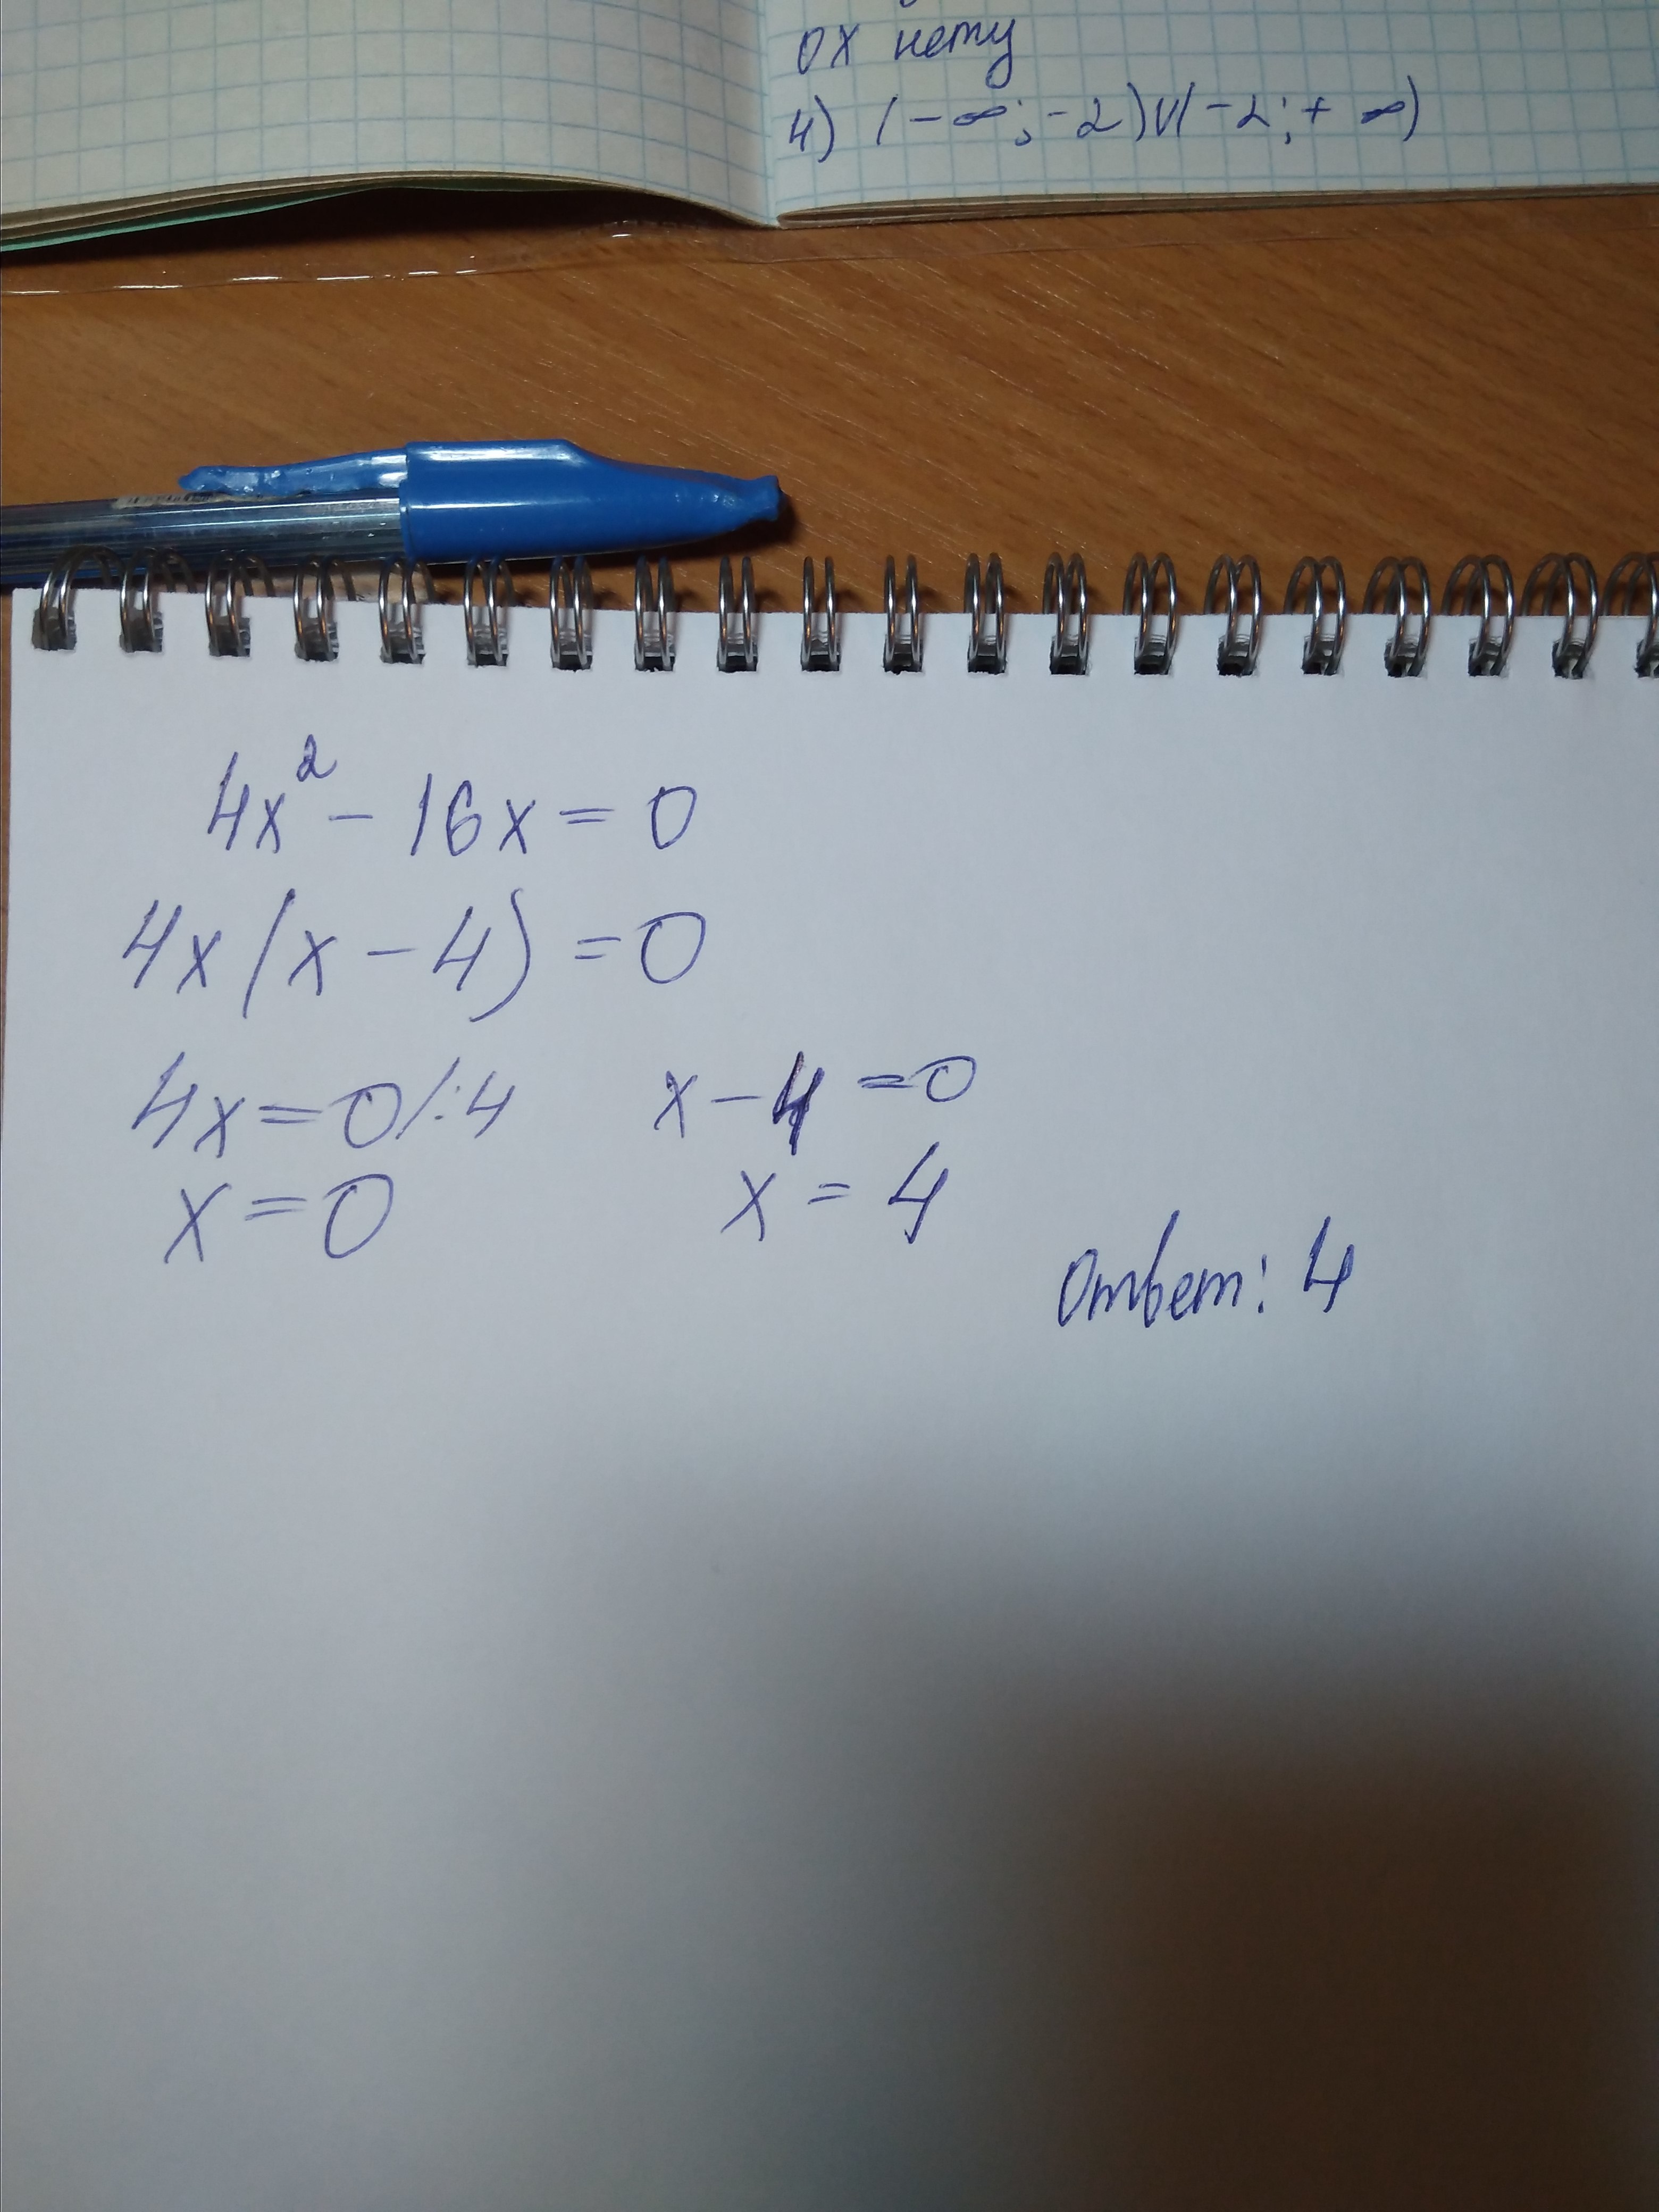 ОХ нету
4) (-∞; -2)V(-2; + ∞)
4x² - 16x = 0
4x(x - 4) = 0
4x = 0 /:4 x - 4 = 0
x = 0 x = 4
Ответ: 4